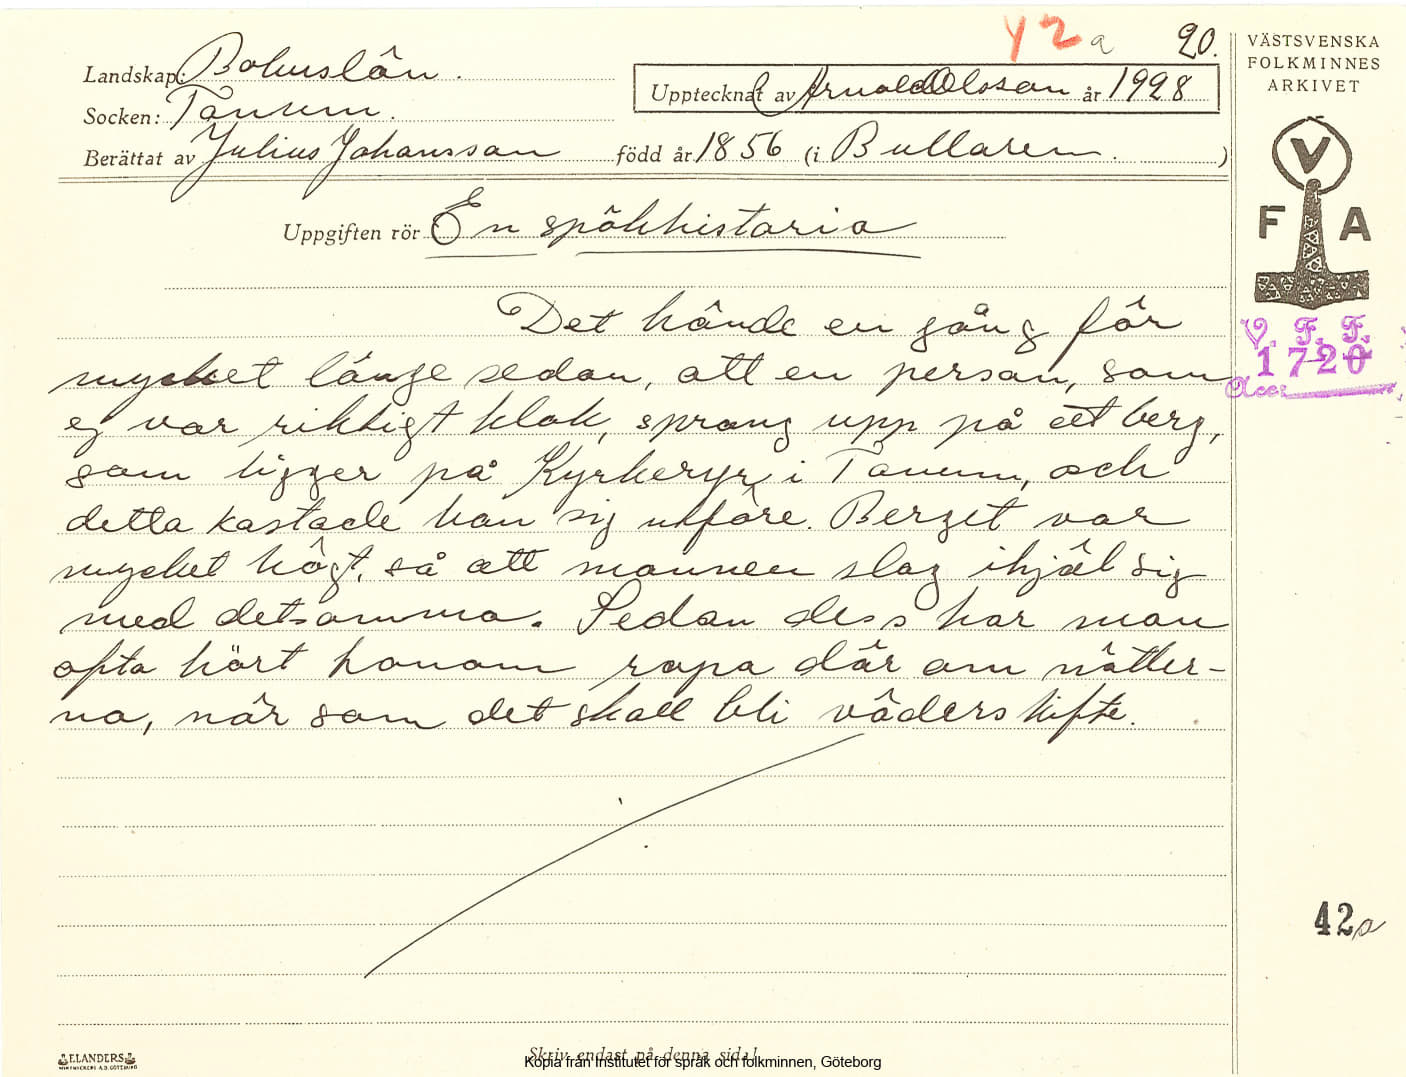 42a 20.
Landskap: Bohuslän.
Socken: Tanum.
Upptecknat av Arnold Olsson år 1928
Berättat av Julius Johansson född år 1856 (i Bullaren. )
Uppgiften rör En spökhistoria
Det hände en gång för
mycket länge sedan, att en person, som
ej var riktigt klok, sprang upp på ett berg,
som ligger på Kyrkeryr i Tanum, och
detta kastade han sig utföre. Berget var
mycket högt, så att mannen slog ihjäl sig
med detsamma. Sedan dess har man
ofta hört honom ropa där om nätter-
na, når som det skall bli väderskifte.
Skriv endast på denna sida!
Kopia från Institutet för språk och folkminnen, Göteborg
ELANDERS
VÄSTSVENSKA
FOLKMINNES
ARKIVET
V
F A
V. F. F.
1720
Acc
42a